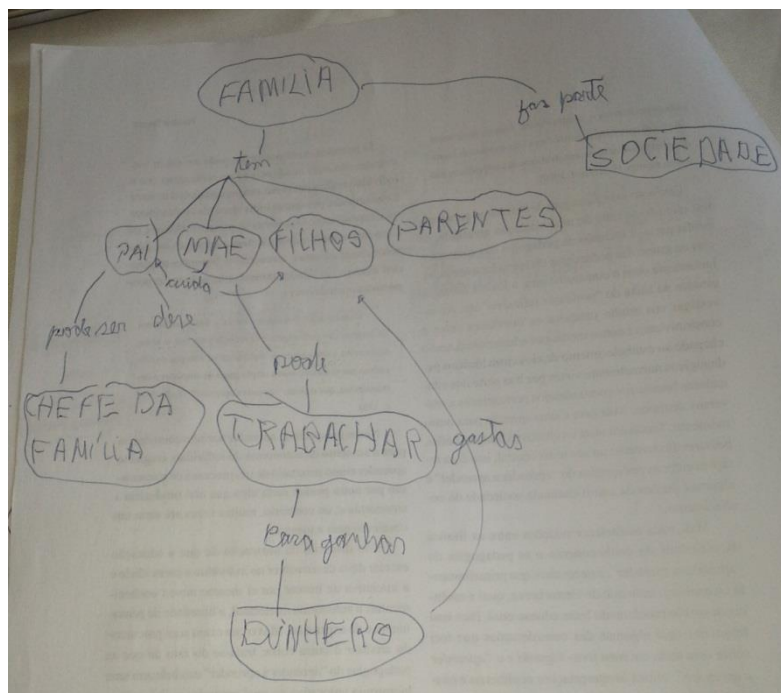 FAMILIA
faz parte
SOCIEDADE
tem
PAI
MAE
FILHOS
PARENTES
cuida
pode ser
deve
pode
CHEFE DA
FAMÍLIA
TRABACHAR
gastas
Para ganhar
DINHERO